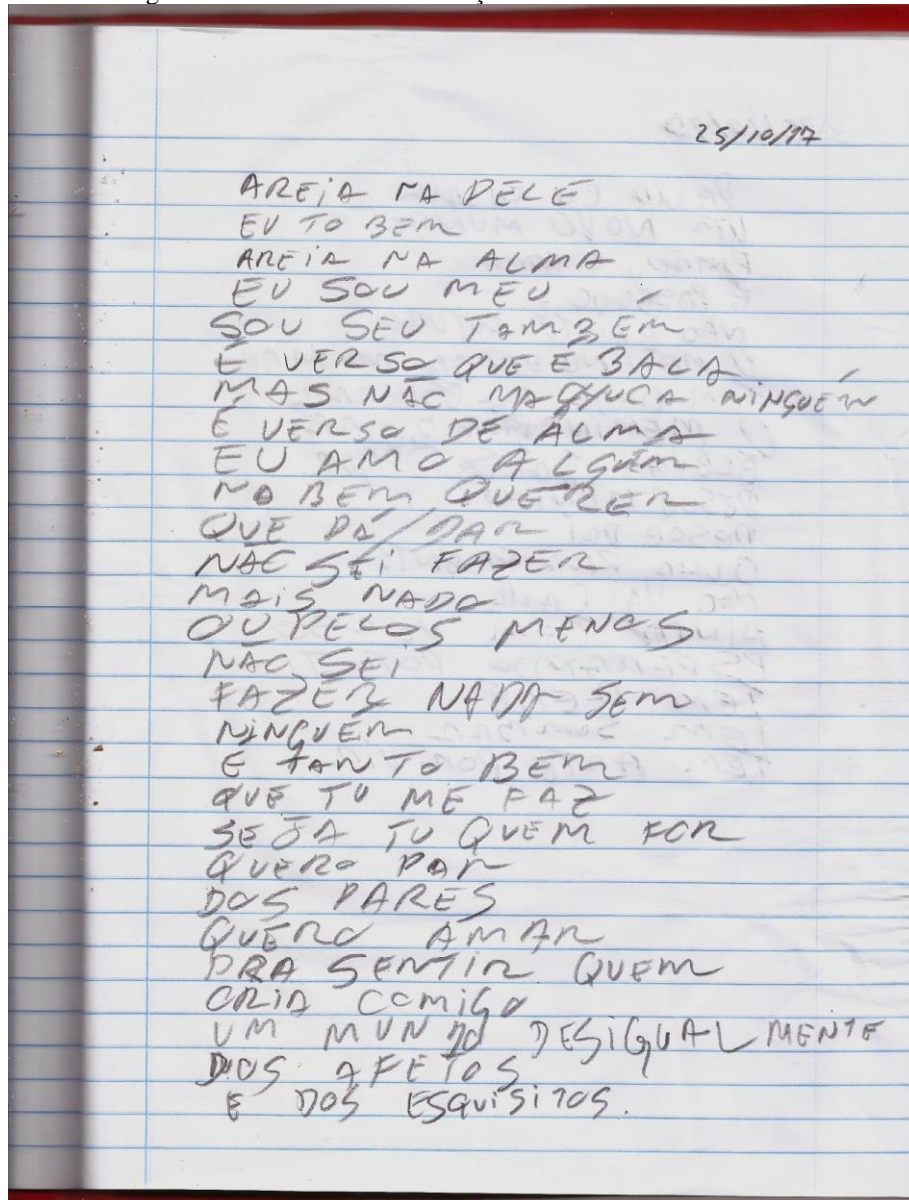 25/10/17
AREIA NA PELE
EU TO BEM
AREIA NA ALMA
EU SOU MEU
SOU SEU TAMBÉM
É VERSO QUE É BALA
MAS NÃO MACHUCA NINGUÉM
É VERSO DE ALMA
EU AMO ALGUÉM
NO BEM QUERER
QUE DÁ/DAR
NÃO SEI FAZER
MAIS NADA
OU PELOS MENOS
NÃO SEI
FAZER NADA SEM
NINGUÉM
É TANTO BEM
QUE TU ME FAZ
SEJA TU QUEM FOR
QUERO PAR
DOS PARES
QUERO AMAR
PRA SENTIR QUEM
CRIA COMIGO
UM MUNDO DESIGUALMENTE
DOS AFETOS
E DOS ESQUISITOS.